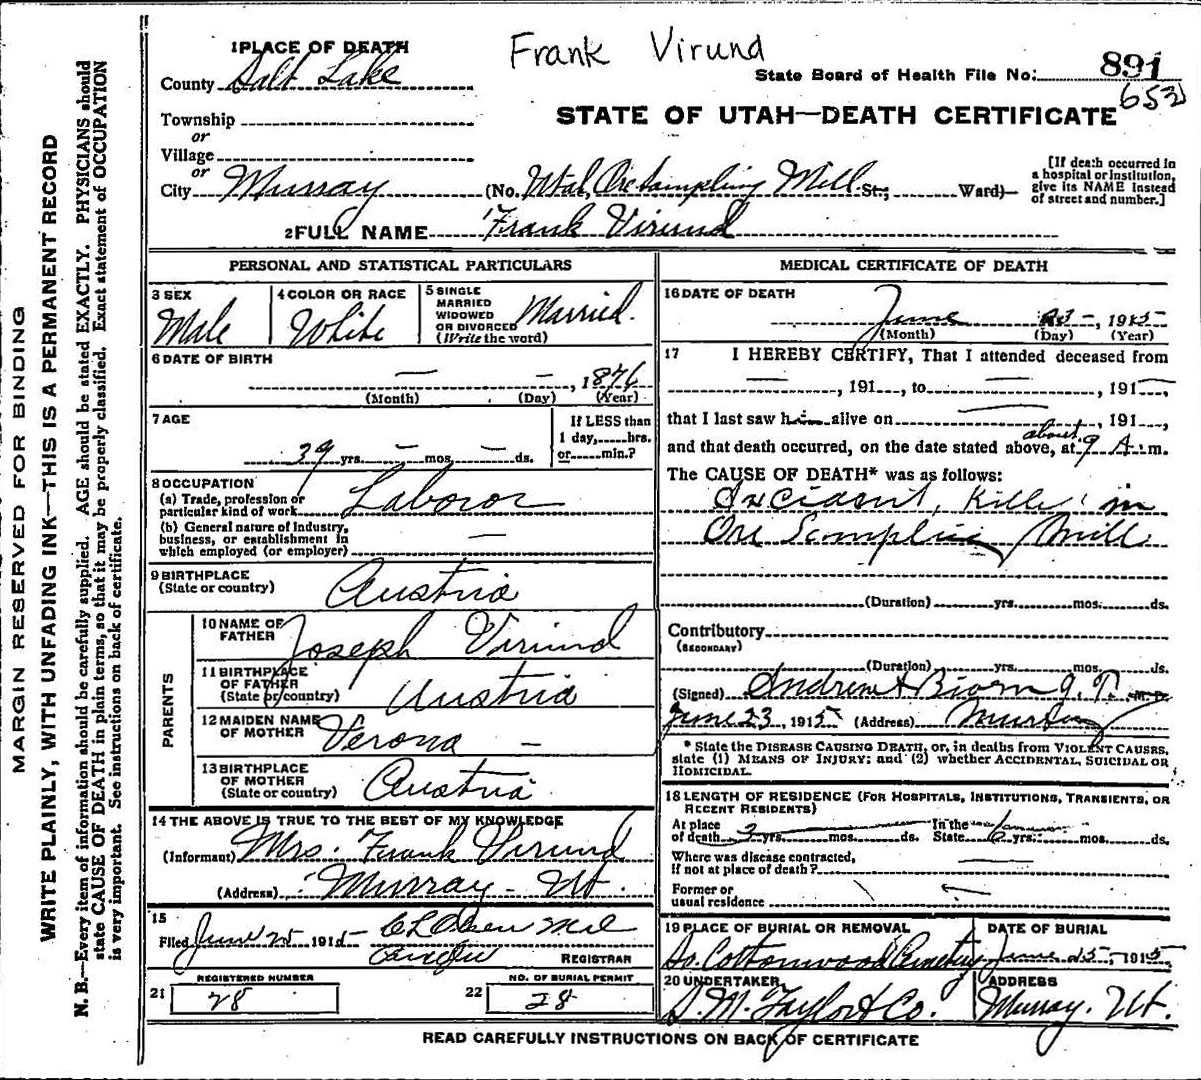 Frank Virund
1 PLACE OF DEATH
County Salt Lake
State Board of Health File No. 891
652
Township
or
Village
or
STATE OF UTAH—DEATH CERTIFICATE
City Murray (No. Utah Ore Sampling Mill St.; Ward)
[If death occurred in
a hospital or institution,
give its NAME instead
of street and number.]
2 FULL NAME Frank Virund
PERSONAL AND STATISTICAL PARTICULARS
3 SEX
Male
4 COLOR OR RACE
White
5 SINGLE
MARRIED
WIDOWED
OR DIVORCED
(Write the word)
Married.
6 DATE OF BIRTH
— — , 1876
(Month) (Day) (Year)
7 AGE
39 yrs. — mos. — ds.
If LESS than
1 day,......hrs.
or......min.?
8 OCCUPATION
(a) Trade, profession or
particular kind of work Laboror
(b) General nature of industry,
business, or establishment in
which employed (or employer) —
9 BIRTHPLACE
(State or country) Austria
PARENTS
10 NAME OF
FATHER Joseph Virund
11 BIRTHPLACE
OF FATHER
(State or country) Austria
12 MAIDEN NAME
OF MOTHER Verona —
13 BIRTHPLACE
OF MOTHER
(State or country) Austria
14 THE ABOVE IS TRUE TO THE BEST OF MY KNOWLEDGE
(Informant) Mrs. Frank Virund
(Address) Murray - Ut.
15
Filed June 25 1915
REGISTRAR
REGISTERED NUMBER
21 28
NO. OF BURIAL PERMIT
22 28
MEDICAL CERTIFICATE OF DEATH
16 DATE OF DEATH
June 23 -, 1915
(Month) (Day) (Year)
17 I HEREBY CERTIFY, That I attended deceased from
— , 191 , to — , 191 ,
that I last saw him alive on — , 191 ,
and that death occurred, on the date stated above, at about 9 A. m.
The CAUSE OF DEATH* was as follows:
Accident, Killed in
Ore Sampling Mill
(Duration) yrs. mos. ds.
Contributory
(SECONDARY)
(Duration) yrs. mos. ds.
(Signed) Andrew Biorn M. D.
June 23, 1915 (Address) Murray
* State the DISEASE CAUSING DEATH, or, in deaths from VIOLENT CAUSES,
state (1) MEANS OF INJURY; and (2) whether ACCIDENTAL, SUICIDAL OR
HOMICIDAL.
18 LENGTH OF RESIDENCE (FOR HOSPITALS, INSTITUTIONS, TRANSIENTS, OR
RECENT RESIDENTS)
At place
of death 3 yrs. mos. ds. In the
State 6 yrs. mos. ds.
Where was disease contracted,
if not at place of death?
Former or
usual residence
19 PLACE OF BURIAL OR REMOVAL
So. Cottonwood Cemetery
DATE OF BURIAL
June 25, 1915
20 UNDERTAKER
S. M. Taylor & Co.
ADDRESS
Murray. Ut.
READ CAREFULLY INSTRUCTIONS ON BACK OF CERTIFICATE
MARGIN RESERVED FOR BINDING
WRITE PLAINLY, WITH UNFADING INK—THIS IS A PERMANENT RECORD
N. B.—Every item of information should be carefully supplied. AGE should be stated EXACTLY. PHYSICIANS should
state CAUSE OF DEATH in plain terms, so that it may be properly classified. Exact statement of OCCUPATION
is very important. See instructions on back of certificate.